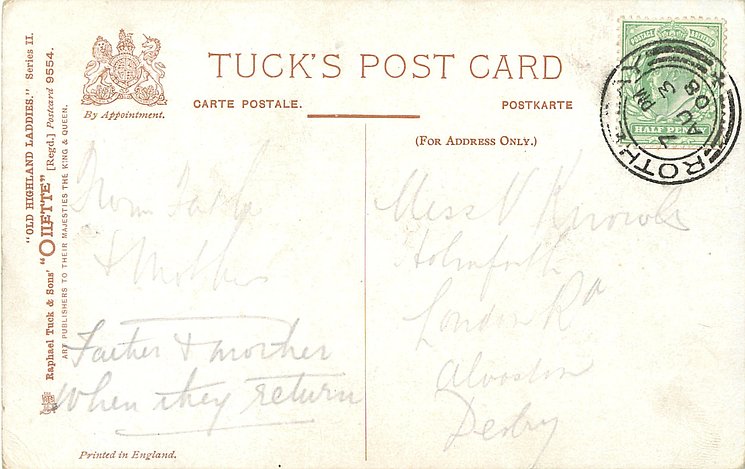 "OLD HIGHLAND LADDIES." Series II.
Raphael Tuck & Sons' "OILETTE" [Regd.] Postcard 9554.
ART PUBLISHERS TO THEIR MAJESTIES THE KING & QUEEN.
By Appointment.
TUCK'S POST CARD
CARTE POSTALE.
POSTKARTE
(FOR ADDRESS ONLY.)
POSTAGE
HALF PENNY
ROTHESAY
3 PM
AU 7
08
From Father
& Mother
Father & mother
When they return
Miss V Knowles
London Rd
Alvaston
Derby
Printed in England.